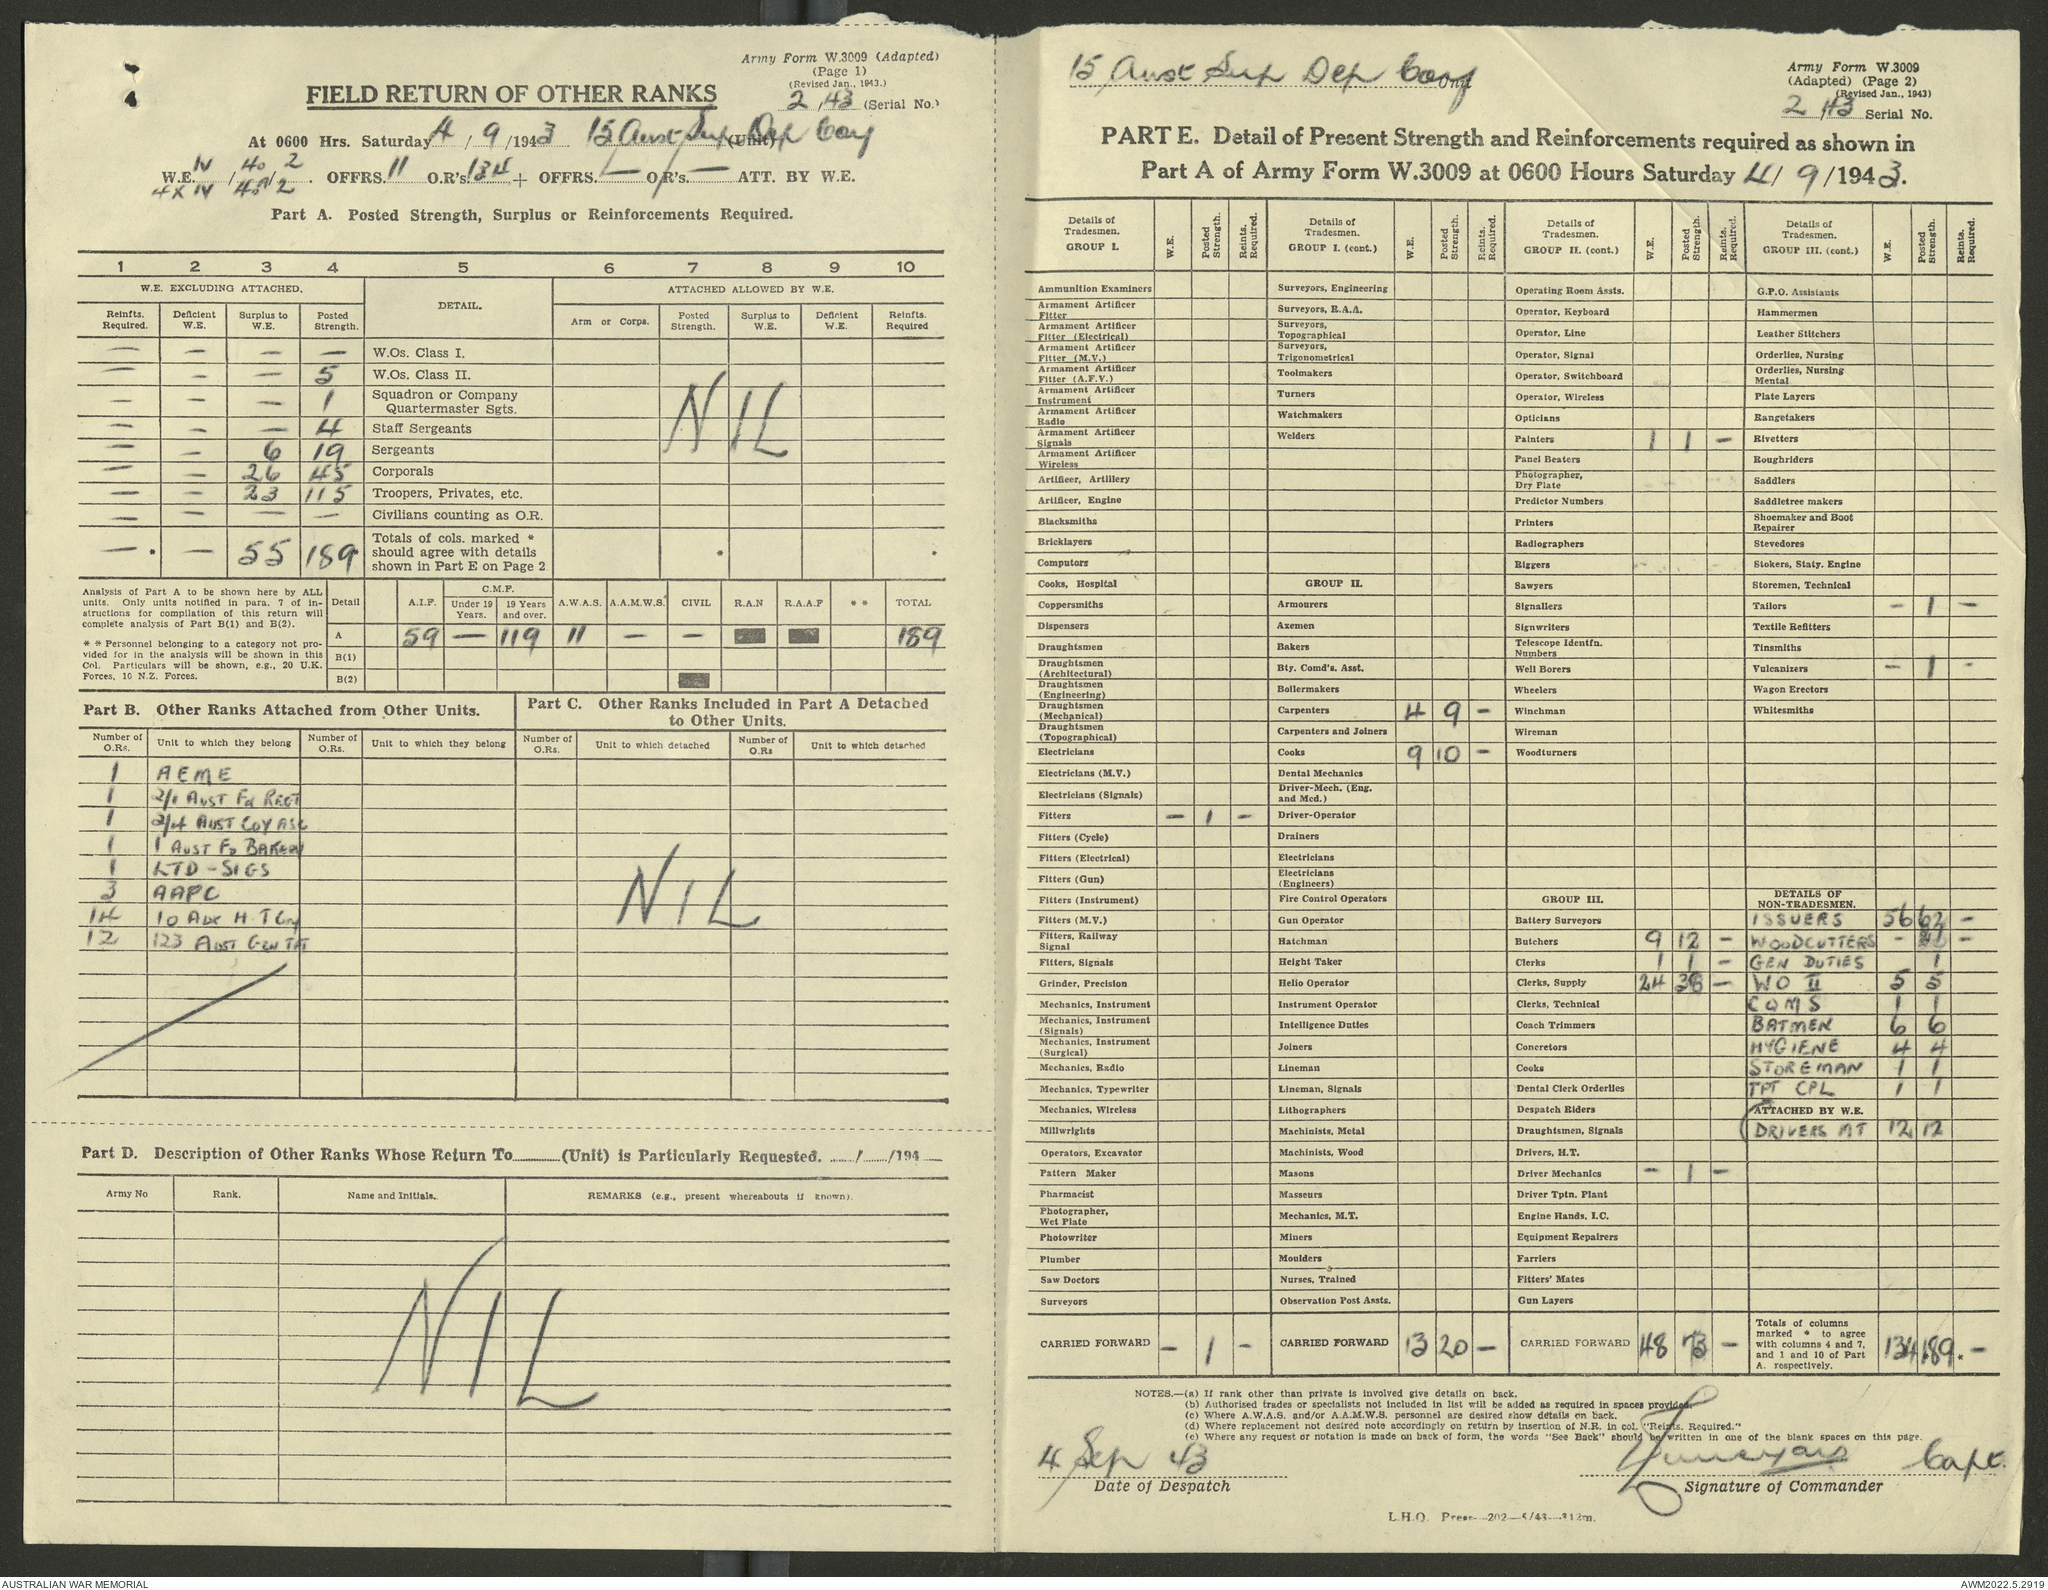 Army Form W.3009 (Adapted)
(Page 1)
(Revised Jan., 1943.)
FIELD RETURN OF OTHER RANKS
2 / 43 (Serial No.)
At 0600 Hrs. Saturday 4 / 9 / 1943 15 Aust Sup Dep Coy (Unit)
W.E. IV / 40 / 2
4 x IV / 40A / 2 . OFFRS. 11 O.R's. 134 + OFFRS. — O.R's. — ATT. BY W.E.
Part A. Posted Strength, Surplus or Reinforcements Required.
1 2 3 4 5 6 7 8 9 10
W.E. EXCLUDING ATTACHED. DETAIL. ATTACHED ALLOWED BY W.E.
Reinfts. Required. Deficient W.E. Surplus to W.E. Posted Strength. Arm or Corps. Posted Strength. Surplus to W.E. Deficient W.E. Reinfts. Required
— — — — W.Os. Class I.
— — — 5 W.Os. Class II.
— — — 1 Squadron or Company Quartermaster Sgts.
— — — 4 Staff Sergeants
— — 6 19 Sergeants
— — 26 45 Corporals
— — 23 115 Troopers, Privates, etc.
— — — — Civilians counting as O.R.
— * — 55 189 * Totals of cols. marked * should agree with details shown in Part E on Page 2 * *
NIL
Analysis of Part A to be shown here by ALL units. Only units notified in para. 7 of instructions for compilation of this return will complete analysis of Part B(1) and B(2).
* * Personnel belonging to a category not provided for in the analysis will be shown in this Col. Particulars will be shown, e.g., 20 U.K. Forces, 10 N.Z. Forces.
Detail A.I.F. C.M.F. Under 19 Years. 19 Years and over. A.W.A.S. A.A.M.W.S. CIVIL R.A.N R.A.A.F * * TOTAL
A 59 — 119 11 — — 189
B(1)
B(2)
Part B. Other Ranks Attached from Other Units.
Number of O.Rs. Unit to which they belong Number of O.Rs. Unit to which they belong
1 AEME
1 2/1 AUST FD REGT
1 2/4 AUST COY ASC
1 1 AUST FD BAKERY
1 LTD - SIGS
3 AAPC
14 10 AUX H T Coy
12 123 AUST GEN TPT
Part C. Other Ranks Included in Part A Detached to Other Units.
Number of O.Rs. Unit to which detached Number of O.Rs Unit to which detached
NIL
Part D. Description of Other Ranks Whose Return To (Unit) is Particularly Requested. / /194
Army No Rank. Name and Initials. REMARKS (e.g., present whereabouts if known).
NIL
15 Aust Sup Dep Coy Unit
Army Form W.3009
(Adapted) (Page 2)
(Revised Jan., 1943)
2 / 43 Serial No.
PART E. Detail of Present Strength and Reinforcements required as shown in
Part A of Army Form W.3009 at 0600 Hours Saturday 4 / 9 / 1943.
Details of Tradesmen. GROUP I. W.E. Posted Strength. Reints. Required.
Ammunition Examiners
Armament Artificer Fitter
Armament Artificer Fitter (Electrical)
Armament Artificer Fitter (M.V.)
Armament Artificer Fitter (A.F.V.)
Armament Artificer Instrument
Armament Artificer Radio
Armament Artificer Signals
Armament Artificer Wireless
Artificer, Artillery
Artificer, Engine
Blacksmiths
Bricklayers
Computors
Cooks, Hospital
Coppersmiths
Dispensers
Draughtsmen
Draughtsmen (Architectural)
Draughtsmen (Engineering)
Draughtsmen (Mechanical)
Draughtsmen (Topographical)
Electricians
Electricians (M.V.)
Electricians (Signals)
Fitters — 1 —
Fitters (Cycle)
Fitters (Electrical)
Fitters (Gun)
Fitters (Instrument)
Fitters (M.V.)
Fitters, Railway Signal
Fitters, Signals
Grinder, Precision
Mechanics, Instrument
Mechanics, Instrument (Signals)
Mechanics, Instrument (Surgical)
Mechanics, Radio
Mechanics, Typewriter
Mechanics, Wireless
Millwrights
Operators, Excavator
Pattern Maker
Pharmacist
Photographer, Wet Plate
Photowriter
Plumber
Saw Doctors
Surveyors
CARRIED FORWARD — 1 —
Details of Tradesmen. GROUP I. (cont.) W.E. Posted Strength. Reints. Required.
Surveyors, Engineering
Surveyors, R.A.A.
Surveyors, Topographical
Surveyors, Trigonometrical
Toolmakers
Turners
Watchmakers
Welders
GROUP II.
Armourers
Axemen
Bakers
Bty. Comd's. Asst.
Boilermakers
Carpenters 4 9 —
Carpenters and Joiners
Cooks 9 10 —
Dental Mechanics
Driver-Mech. (Eng. and Med.)
Driver-Operator
Drainers
Electricians
Electricians (Engineers)
Fire Control Operators
Gun Operator
Hatchman
Height Taker
Helio Operator
Instrument Operator
Intelligence Duties
Joiners
Lineman
Lineman, Signals
Lithographers
Machinists, Metal
Machinists, Wood
Masons
Masseurs
Mechanics, M.T.
Miners
Moulders
Nurses, Trained
Observation Post Assts.
CARRIED FORWARD 13 20 —
Details of Tradesmen. GROUP II. (cont.) W.E. Posted Strength. Reints. Required.
Operating Room Assts.
Operator, Keyboard
Operator, Line
Operator, Signal
Operator, Switchboard
Operator, Wireless
Opticians
Painters 1 1 —
Panel Beaters
Photographer, Dry Plate
Predictor Numbers
Printers
Radiographers
Riggers
Sawyers
Signallers
Signwriters
Telescope Identfn. Numbers
Well Borers
Wheelers
Winchman
Wireman
Woodturners
GROUP III.
Battery Surveyors
Butchers 9 12 —
Clerks 1 1 —
Clerks, Supply 24 38 —
Clerks, Technical
Coach Trimmers
Concretors
Cooks
Dental Clerk Orderlies
Despatch Riders
Draughtsmen, Signals
Drivers, H.T.
Driver Mechanics — 1 —
Driver Tptn. Plant
Engine Hands, I.C.
Equipment Repairers
Farriers
Fitters' Mates
Gun Layers
CARRIED FORWARD 48 73 —
Details of Tradesmen. GROUP III. (cont.) W.E. Posted Strength. Reints. Required.
G.P.O. Assistants
Hammermen
Leather Stitchers
Orderlies, Nursing
Orderlies, Nursing Mental
Plate Layers
Rangetakers
Rivetters
Roughriders
Saddlers
Saddletree makers
Shoemaker and Boot Repairer
Stevedores
Stokers, Staty. Engine
Storemen, Technical
Tailors — 1 —
Textile Refitters
Tinsmiths
Vulcanizers — 1 —
Wagon Erectors
Whitesmiths
DETAILS OF NON-TRADESMEN.
ISSUERS 56 62 —
WOODCUTTERS — —
GEN DUTIES 1
WO II 5 5
CQMS 1 1
BATMEN 6 6
HYGIENE 4 4
STOREMAN 1 1
TPT CPL 1 1
ATTACHED BY W.E.
DRIVERS MT 12 12
Totals of columns marked * to agree with columns 4 and 7, and 1 and 10 of Part A. respectively. 134 189 * —
NOTES.—(a) If rank other than private is involved give details on back.
(b) Authorised trades or specialists not included in list will be added as required in spaces provided.
(c) Where A.W.A.S. and/or A.A.M.W.S. personnel are desired show details on back.
(d) Where replacement not desired note accordingly on return by insertion of N.R. in col. "Reints. Required."
(e) Where any request or notation is made on back of form, the words "See Back" should be written in one of the blank spaces on this page.
4 Sep 43 Capt.
Date of Despatch Signature of Commander
L.H.Q. Press—202—5/43—312m.
AUSTRALIAN WAR MEMORIAL AWM2022.5.2919